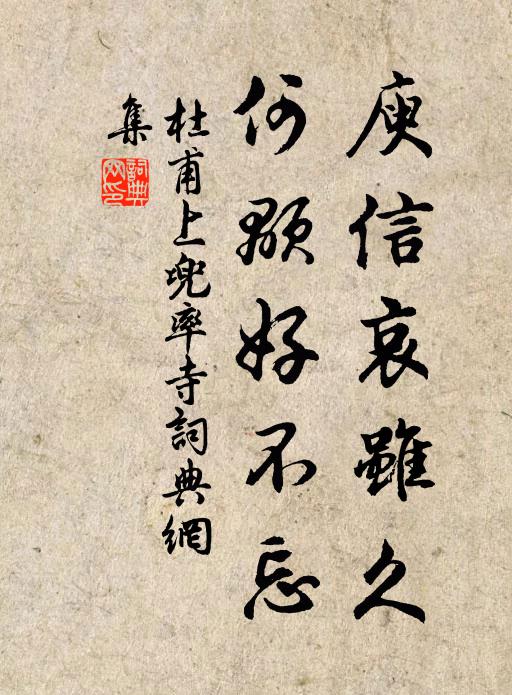 庾信哀雖久
何顒好不忘
杜甫上兜率寺詞典網
集
詞典網印